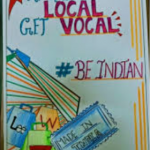 LOCAL
GET VOCAL
#BE INDIAN
MADE IN